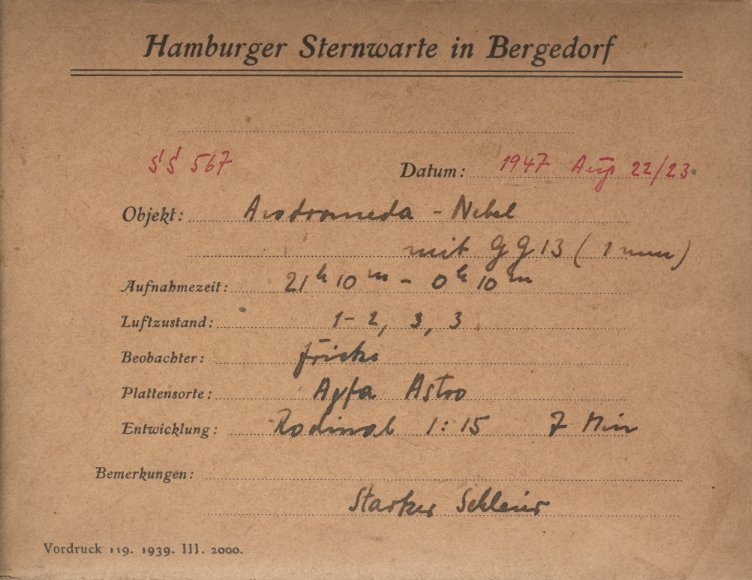 Hamburger Sternwarte in Bergedorf
SS 567 Datum: 1947 Aug 22/23.
Objekt: Andromeda - Nebel
mit GG 13 (1 mm)
Aufnahmezeit: 21h 10m - 0h 10m
Luftzustand: 1-2, 3, 3
Beobachter: Fricke
Plattensorte: Agfa Astro
Entwicklung: Rodinal 1:15 7 Min
Bemerkungen:
Starker Schleier
Vordruck 119. 1939. III. 2000.